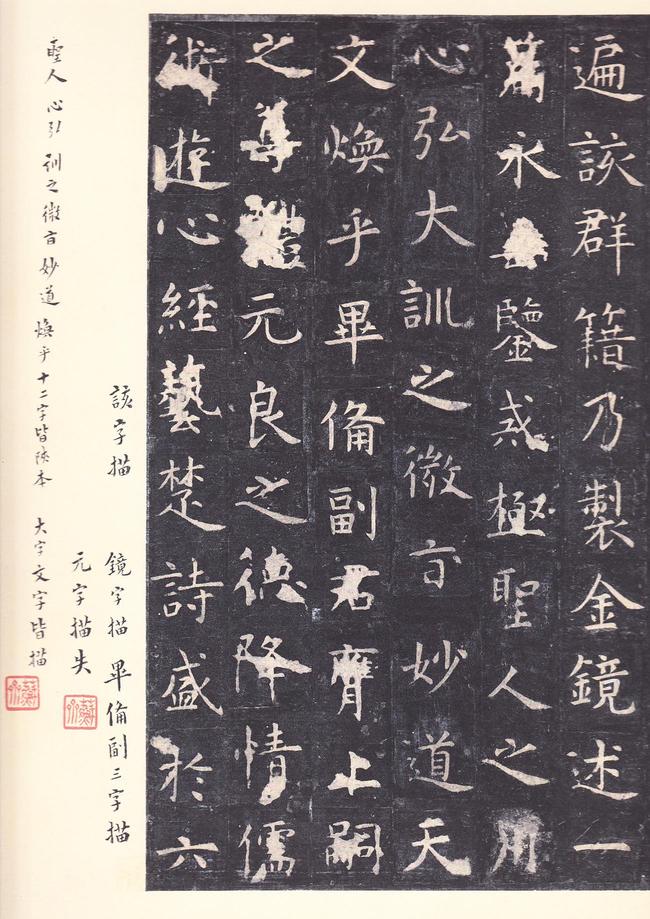 遍該群籍乃製金鏡述一
篇永垂鑒戒極聖人之用
心弘大訓之微言妙道天
文煥乎畢備副君膺上嗣
之尊體元良之德降情儒
術遊心經藝楚詩盛於六
該字描 鏡字描 畢備副三字描
元字描失
聖人 心弘 訓之微言 妙道 煥乎十二字皆陝本 大字文字皆描